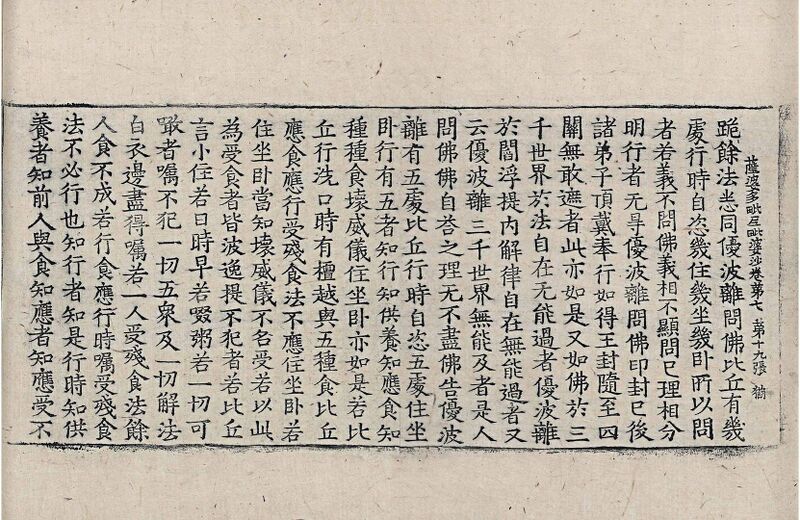 薩婆多毗尼毗婆沙卷第七 第十九張 猶
跪餘法悉同優波離問佛比丘有幾
處行時自恣幾住幾坐幾卧所以問
者若義不問佛義相不顯問已理相分
明行者无㝵優波離問佛印封已後
諸弟子頂戴奉行如得王封隨至四
關無敢遮者此亦如是又如佛於三
千世界於法自在无能過者優波離
於閻浮提内解律自在無能過者又
云優波離三千世界無能及者是人
問佛佛自荅之理无不盡佛告優波
離有五處比丘行時自恣五處住坐
卧行有五者知行知供養知應食知
種種食壞威儀住坐卧亦如是若比
丘行洗口時有檀越與五種食比丘
應食應行受殘食法不應住坐卧若
住坐卧當知壞威儀不名受若以此
為受食者皆波逸提不犯者若比丘
言小住若日時早若啜粥若一切可
噉者囑不犯一切五眾及一切解法
白衣邊盡得囑若一人受殘食法餘
人食不成若行食應行時囑受殘食
法不必行也知行者知是行時知供
養者知前人與食知應者知應受不